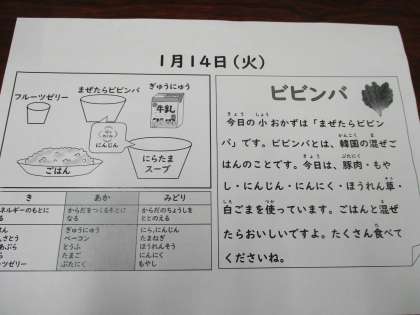 1月14日(火)
フルーツゼリー
まぜたらビビンバ
ぎゅうにゅう
牛乳
にんじん
ごはん
にらたま
スープ
き
あか
みどり
ネルギーのもとに
る
からだをつくるもとに
なる
からだのちょうしを
ととのえる
はん
さとう
あぶら
ら
ーツゼリー
ぎゅうにゅう
ベーコン
とうふ
たまご
ぶたにく
にら,にんじん
たまねぎ
ほうれんそう
にんにく
もやし
ビビンバ
今日の小おかずは「まぜたらビビン
バ」です。ビビンバとは、韓国の混ぜご
はんのことです。今日は、豚肉・もや
し・にんじん・にんにく・ほうれん草・
白ごまを使っています。ごはんと混ぜ
たらおいしいですよ。たくさん食べて
くださいね。